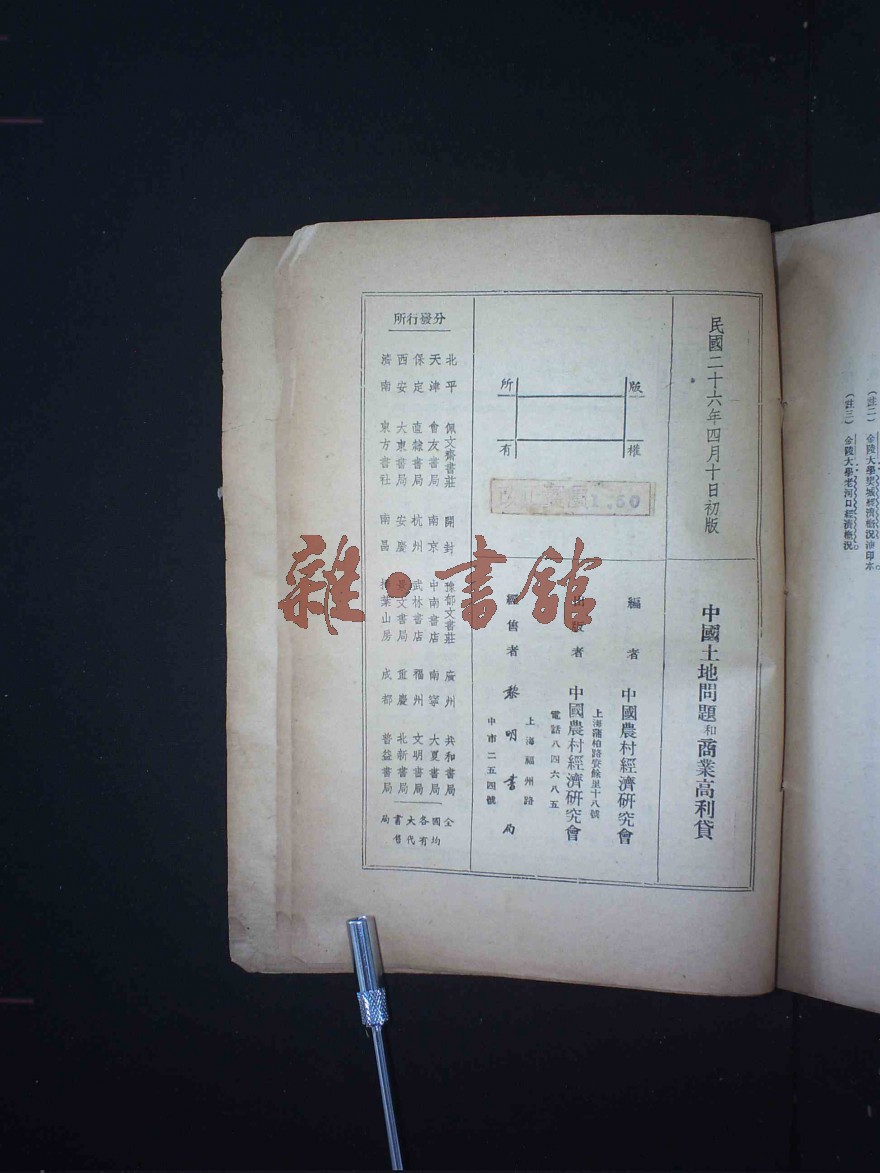 (註二) 金陵大學
(註三) 金陵大學老河口經濟概況。
民國二十六年四月十日初版
中國土地問題和商業高利貸
版權
所有
編者 中國農村經濟研究會
上海蒲柏路
十八號
出版者 中國農村經濟研究會
電話八四六八五
經售者 黎明書局
上海福州路
中市二五四號
分發行所
北平 佩文齋書莊 開封 豫郁文書莊 廣州 共和書局
天津 會友書局 南京 中南書店 南寧 大夏書局
保定 直隸書局 杭州 武林書店 福州 文明書局
西安 大東書局 安慶 文書局 重慶 北新書局
濟南 東方書社 南昌 葉山房 成都 普益書局
全國各大書局
均有代售
雜·書館